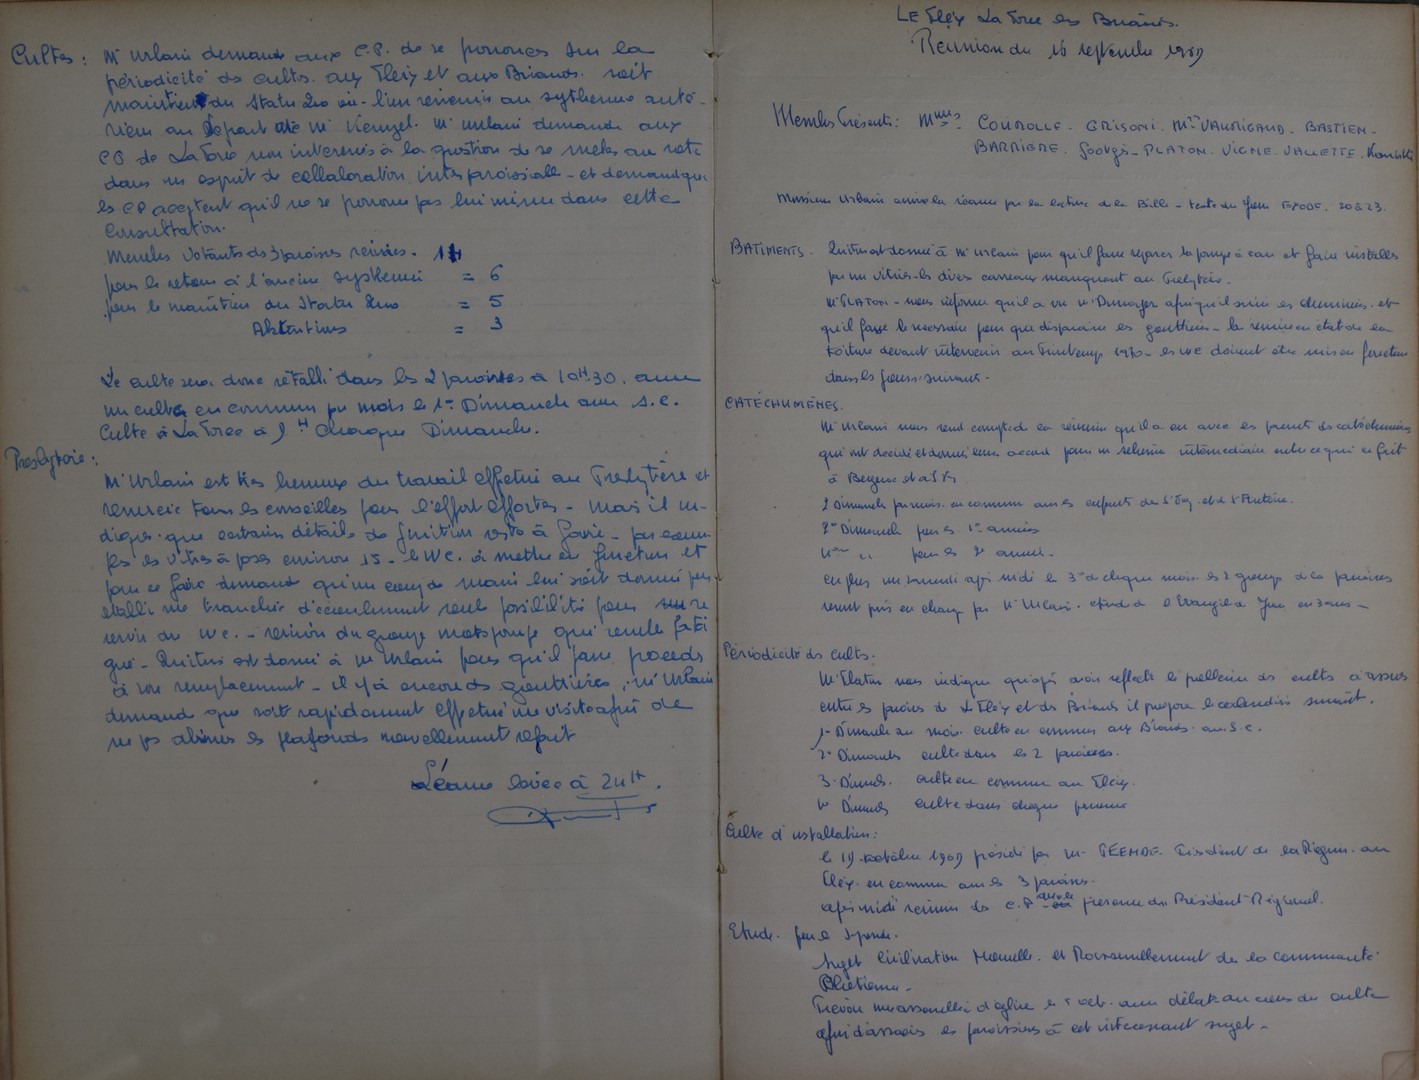 Cultes : Mr Urbain demande aux C.P. de se prononcer sur la
périodicité des cultes aux Fleix et aux Briands. soit
maintien du Statu Quo ou l'on reviennt au systheme anté-
rieur au départ de Mr Kenzel. Mr Urbain demande aux
CP de La Force non intéressés à la question de se mettre au vote
dans un esprit de collaboration interparoissiale - et demande que
les CP acceptent qu'il ne se prononce pas lui même dans cette
Consultation.
Membres Votants des 3 paroisses réunies. 14
pour le retour à l'ancien systheme = 6
pour le maintien du Statu Quo = 5
Abstentions = 3
Le culte sera donc rétabli dans les 2 paroisses à 10H30. avec
un culte en commun par mois le 1er Dimanche avec S.C.
Culte à La Force à 9H Chaque Dimanche.
Presbytère :
Mr Urbain est très heureux du travail effectué au Presbytère et
remercie tous les conseillers pour l'effort - Mais il in-
dique que certains détails de finition reste à faire - par exem-
ple les vitres à poser environ 15 - le WC. à mettre en fonction et
pour ce faire demande qu'un coup de main lui soit donné pour
établir une tranchée d'écoulement seule possibilité pour se
servir du WC. - révision du groupe motopompe qui semble fati
gué - Quitus est donné à Mr Urbain pour qu'il fasse procéder
à son remplacement - il y a encore des gouttières, Mr Urbain
demande que soit rapidement effectué une visite afin de
ne pas abimer les plafonds nouvellement refait
Séance levée à 24H.
LE Fleix La Force les Briands.
Réunion du 16 septembre 1969
Membres Présents : Mmes COUROLLE - GRISONI. Mrs VAURIGAUD - BASTIEN -
BARRIERE. Georges - PLATON. VIGNE. VALLETTE.
Monsieur Urbain ouvre la séance par la lecture de la Bible - texte du jour EXODE. 20 à 23.
BATIMENTS. Quitus est donné à Mr Urbain pour qu'il fasse réparer la pompe à eau et faire installer
par un vitrier les divers carreaux manquant au Presbytère.
Mr PLATON - nous informe qu'il a vu Mr Dumoyer afin qu'il suive les cheminées. et
qu'il fasse le nécessaire pour que disparaisse les gouttières - la remise en état de la
toiture devant intervenir au Printemps 1970 - les WC doivent être mis en fonction
dans les jours suivants -
CATÉCHUMÈNES.
Mr Urbain nous rend compte de la réunion qu'il a eu avec les parents des catéchumènes
qui ont décidé et donné leur accord pour un schéma intermédiaire entre ce qui se fait
à Bergerac et à Ste Foy
2 Dimanche par mois en commun avec les enfants de Ste Foy et de St Antoine.
2me Dimanche pour les 1re années
4me " pour les 2e année -
en plus un samedi après midi le 3me de chaque mois. les 2 groupes de la paroisse
seront pris en charge par Mr Urbain. étude de l'Evangile de Jean en 3 ans -
Périodicité des cultes.
Mr Platon nous indique qu'après avoir réfléchi le problème des cultes à assurer
entre les paroisses de Le Fleix et des Briands il propose le calendrier suivant.
1er Dimanche du mois. Culte en commun aux Briands avec S.C.
2e Dimanche culte dans les 2 paroisses.
3. Dimanche. culte en commun au Fleix.
4e Dimanche culte dans chaque paroisse
Culte d'installation :
le 19 octobre 1969 présidé par Mr Président de la Région. au
Fleix. en commun avec les 3 paroisses.
après midi réunion des C.P avec la présence du Président Régional.
Etude. pour le Synode.
Sujet Civilisation Nouvelle. et Renouvellement de la communauté
Chrétienne -
Prévoir une assemblée d'église le 5 oct. avec débat au cours du culte
afin d'associer les paroissiens à cet intéressant sujet -